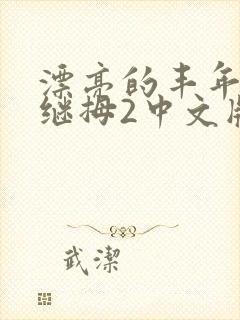 漂亮的丰年
继拇2中文版
武潔